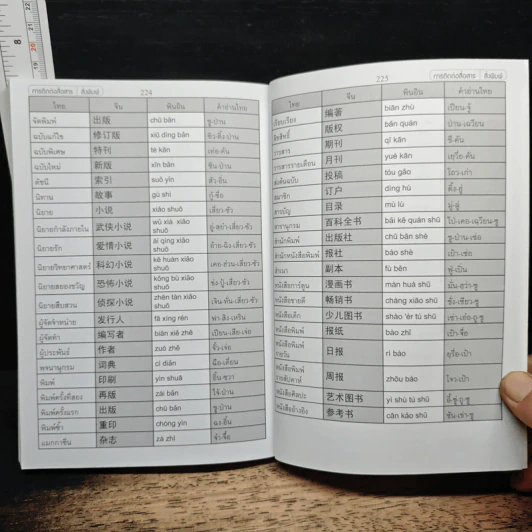 การติดต่อสื่อสาร สิ่งพิมพ์ 224
ไทย จีน พินอิน คำอ่านไทย
จัดพิมพ์ 出版 chū bǎn ชู-ป่าน
ฉบับแก้ไข 修订版 xiū dìng bǎn ซิว-ติ้ง-ป่าน
ฉบับพิเศษ 特刊 tè kān เท่อ-คัน
ฉบับใหม่ 新版 xīn bǎn ซิน-ป่าน
ดัชนี 索引 suǒ yǐn
นิทาน 故事 gù shì กู้-ซื่อ
นิยาย 小说 xiǎo shuō เสี่ยว-ซัว
นิยายกำลังภายใน 武侠小说 wǔ xiá xiǎo shuō
นิยายรัก 爱情小说 ài qíng xiǎo shuō
นิยายวิทยาศาสตร์ 科幻小说 kē huàn xiǎo shuō
นิยายสยองขวัญ 恐怖小说 kǒng bù xiǎo shuō
นิยายสืบสวน 侦探小说 zhēn tàn xiǎo shuō
ผู้จัดจำหน่าย 发行人 fā xíng rén ฟา-สิง-เหริน
ผู้จัดทำ 编写者 biān xiě zhě เปียน-เสี่ย-เจ่อ
ผู้ประพันธ์ 作者 zuò zhě จั้ว-เจ่อ
พจนานุกรม 词典 cí diǎn ฉือ-เตี่ยน
พิมพ์ 印刷 yìn shuā อิ้น-ซวา
พิมพ์ครั้งที่สอง 再版 zài bǎn ไจ้-ป่าน
พิมพ์ครั้งแรก 出版 chū bǎn ชู-ป่าน
พิมพ์ซ้ำ 重印 chóng yìn ฉง-อิ้น
แมกกาซีน 杂志 zá zhì จ๋า-จื้อ
225 การติดต่อสื่อสาร สิ่งพิมพ์
ไทย จีน พินอิน คำอ่านไทย
เรียบเรียง 编著 biān zhù เปียน-จู้
ลิขสิทธิ์ 版权 bǎn quán ป่าน-เฉวียน
วารสาร 期刊 qī kān ชี-คัน
วารสารรายเดือน 月刊 yuè kān เยวี่ย-คัน
ส่งต้นฉบับ 投稿 tóu gǎo โถว-เก่า
สมาชิก 订户 dìng hù ติ้ง-ฮู่
สารบัญ 目录 mù lù มู่-ลู่
สารานุกรม 百科全书 bǎi kē quán shū ไป่-เคอ-เฉวียน-ซู
สำนักพิมพ์ 出版社 chū bǎn shè ชู-ป่าน-เซ่อ
สำนักหนังสือพิมพ์ 报社 bào shè เป้า-เซ่อ
สำเนา 副本 fù běn ฟู่-เปิ่น
หนังสือการ์ตูน 漫画书 màn huà shū มั่น-ฮว่า-ซู
หนังสือขายดี 畅销书 chàng xiāo shū ชั่ง-เซียว-ซู
หนังสือเด็ก 少儿图书 shào 'ér tú shū
หนังสือพิมพ์ 报纸 bào zhǐ เป้า-จื่อ
หนังสือพิมพ์รายวัน 日报 rì bào
周报 zhōu bào โจว-เป้า
หนังสือศิลปะ 艺术图书 yì shù tú shū อี้-ซู่-ถู-ซู
หนังสืออ้างอิง 参考书 cān kǎo shū ชัน-เข่า-ซู